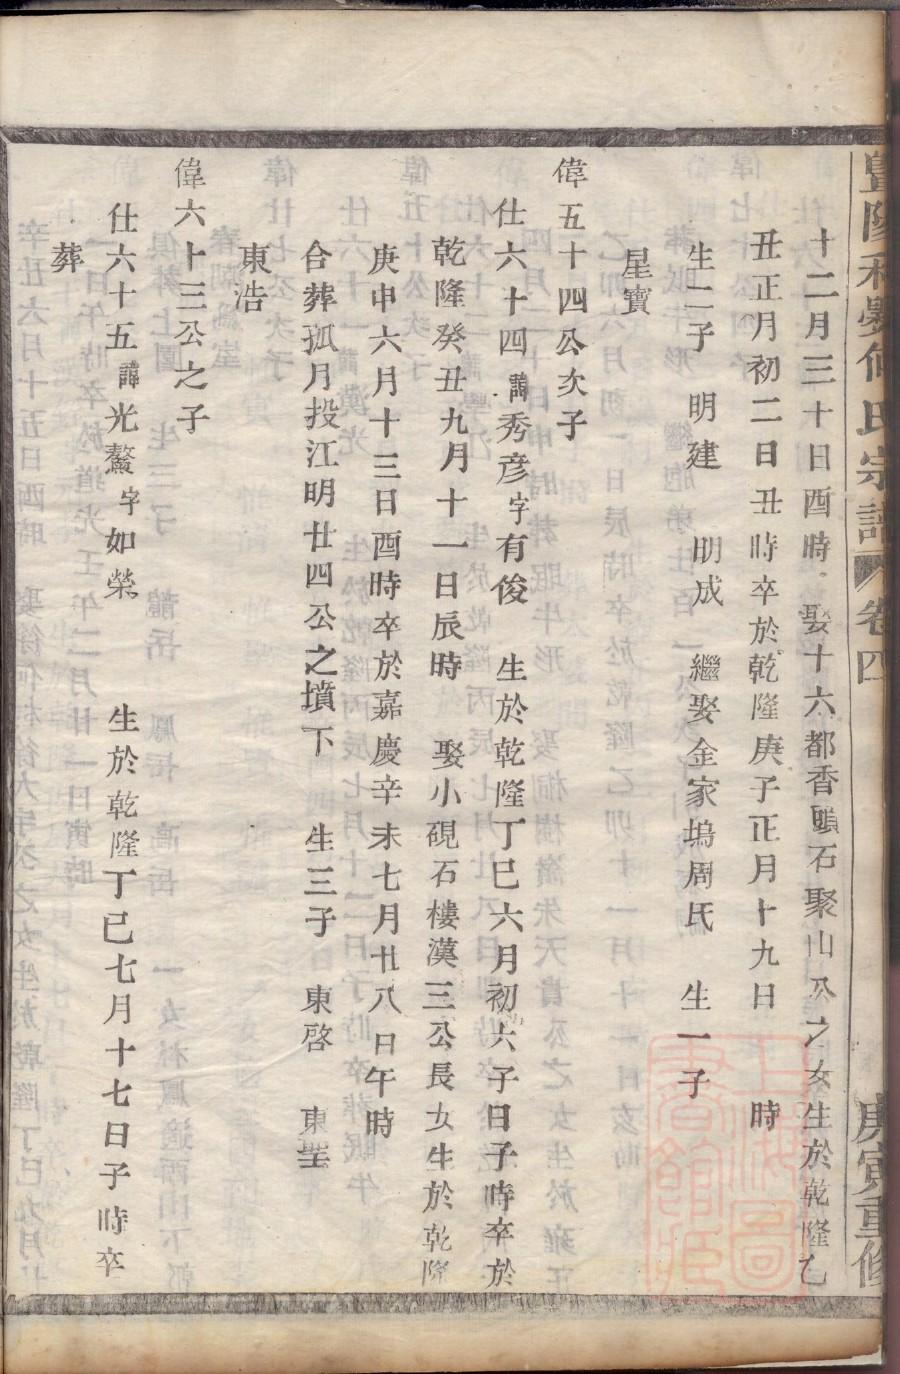 暨陽 何氏宗譜 卷四 庚寅重修
十二月三十日酉時 娶十六都香頭石聚山公之女生於乾隆乙
丑正月初二日丑時卒於乾隆庚子正月十九日 時
生二子 明建 明成 繼娶金家塢周氏 生一子
星寶
偉五十四公次子
仕六十四諱秀彦字有俊 生於乾隆丁巳六月初六子日子時卒於
乾隆癸丑九月十一日辰時 娶小硯石樓漢三公長女生於乾隆
庚申六月十三日酉時卒於嘉慶辛未七月廿八日午時
合葬孤月投江明廿四公之墳下 生三子 東啓 東聖
東浩
偉六十三公之子
仕六十五諱光鰲字如榮 生於乾隆丁巳七月十七日子時卒
葬
上海圖書館藏